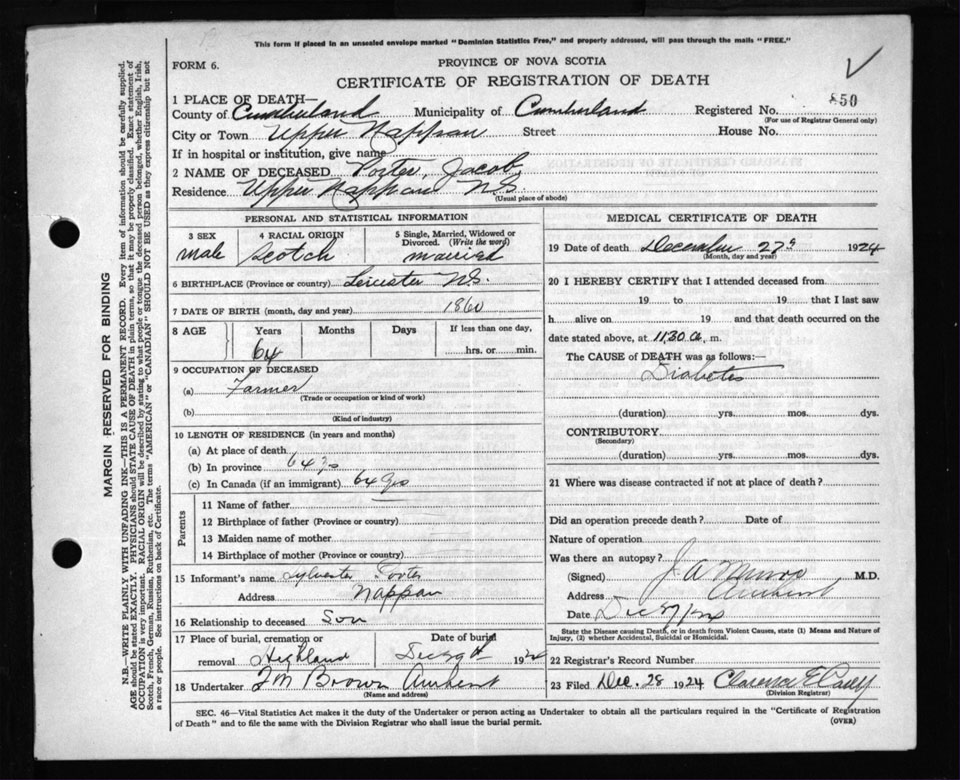 This form if placed in an unsealed envelope marked "Dominion Statistics Free," and properly addressed, will pass through the mails "FREE."
FORM 6.
PROVINCE OF NOVA SCOTIA
CERTIFICATE OF REGISTRATION OF DEATH
1 PLACE OF DEATH—
County of Cumberland Municipality of Cumberland Registered No. 850
(For use of Registrar General only)
City or Town Upper Nappan Street House No.
If in hospital or institution, give name
2 NAME OF DECEASED Porter, Jacob
Residence Upper Nappan N.S.
(Usual place of abode)
PERSONAL AND STATISTICAL INFORMATION
3 SEX 4 RACIAL ORIGIN 5 Single, Married, Widowed or Divorced. (Write the word)
male Scotch married
6 BIRTHPLACE (Province or country) Leicester N.S.
7 DATE OF BIRTH (month, day and year) 1860
8 AGE Years Months Days If less than one day,
64 hrs. or min.
9 OCCUPATION OF DECEASED
(a) Farmer
(Trade or occupation or kind of work)
(b)
(Kind of industry)
10 LENGTH OF RESIDENCE (in years and months)
(a) At place of death
(b) In province 64 yrs
(c) In Canada (if an immigrant) 64 yrs
Parents
11 Name of father
12 Birthplace of father (Province or country)
13 Maiden name of mother
14 Birthplace of mother (Province or country)
15 Informant's name Sylvester Porter
Address Nappan
16 Relationship to deceased Son
17 Place of burial, cremation or removal Highland
Date of burial 1924
18 Undertaker Brown Amherst
(Name and address)
MEDICAL CERTIFICATE OF DEATH
19 Date of death December 27 1924
(Month, day and year)
20 I HEREBY CERTIFY that I attended deceased from
19 to 19 that I last saw
h alive on 19 and that death occurred on
date stated above, at 11.30 a. m.
The CAUSE of DEATH was as follows:—
Diabetes
(duration) yrs. mos. dys.
CONTRIBUTORY
(Secondary)
(duration) yrs. mos. dys.
21 Where was disease contracted if not at place of death?
Did an operation precede death? Date of
Nature of operation
Was there an autopsy?
(Signed) J A Munro M.D.
Address Amherst
Date
State the Disease causing Death, or in death from Violent Causes, state (1) Means and Nature of
Injury, (2) whether Accidental, Suicidal or Homicidal.
22 Registrar's Record Number
23 Filed Dec. 28 1924 Clarence E
(Division Registrar)
SEC. 46—Vital Statistics Act makes it the duty of the Undertaker or person acting as Undertaker to obtain all the particulars required in the "Certificate of Registration
of Death" and to file the same with the Division Registrar who shall issue the burial permit.
(OVER)
MARGIN RESERVED FOR BINDING
N.B.—WRITE PLAINLY WITH UNFADING INK—THIS IS A PERMANENT RECORD. Every item of information should be carefully supplied.
AGE should be stated EXACTLY. PHYSICIANS should STATE CAUSE OF DEATH in plain terms, so that it may be properly classified. Exact statement of
OCCUPATION is very important. RACIAL ORIGIN will be described by stating to what people or tongue the deceased person belonged, whether English, Irish,
Scotch, French, German, Russian, Ruthenian, etc. The terms "AMERICAN" or "CANADIAN" SHOULD NOT BE USED as they express citizenship but not
a race or people. See instructions on back of Certificate.